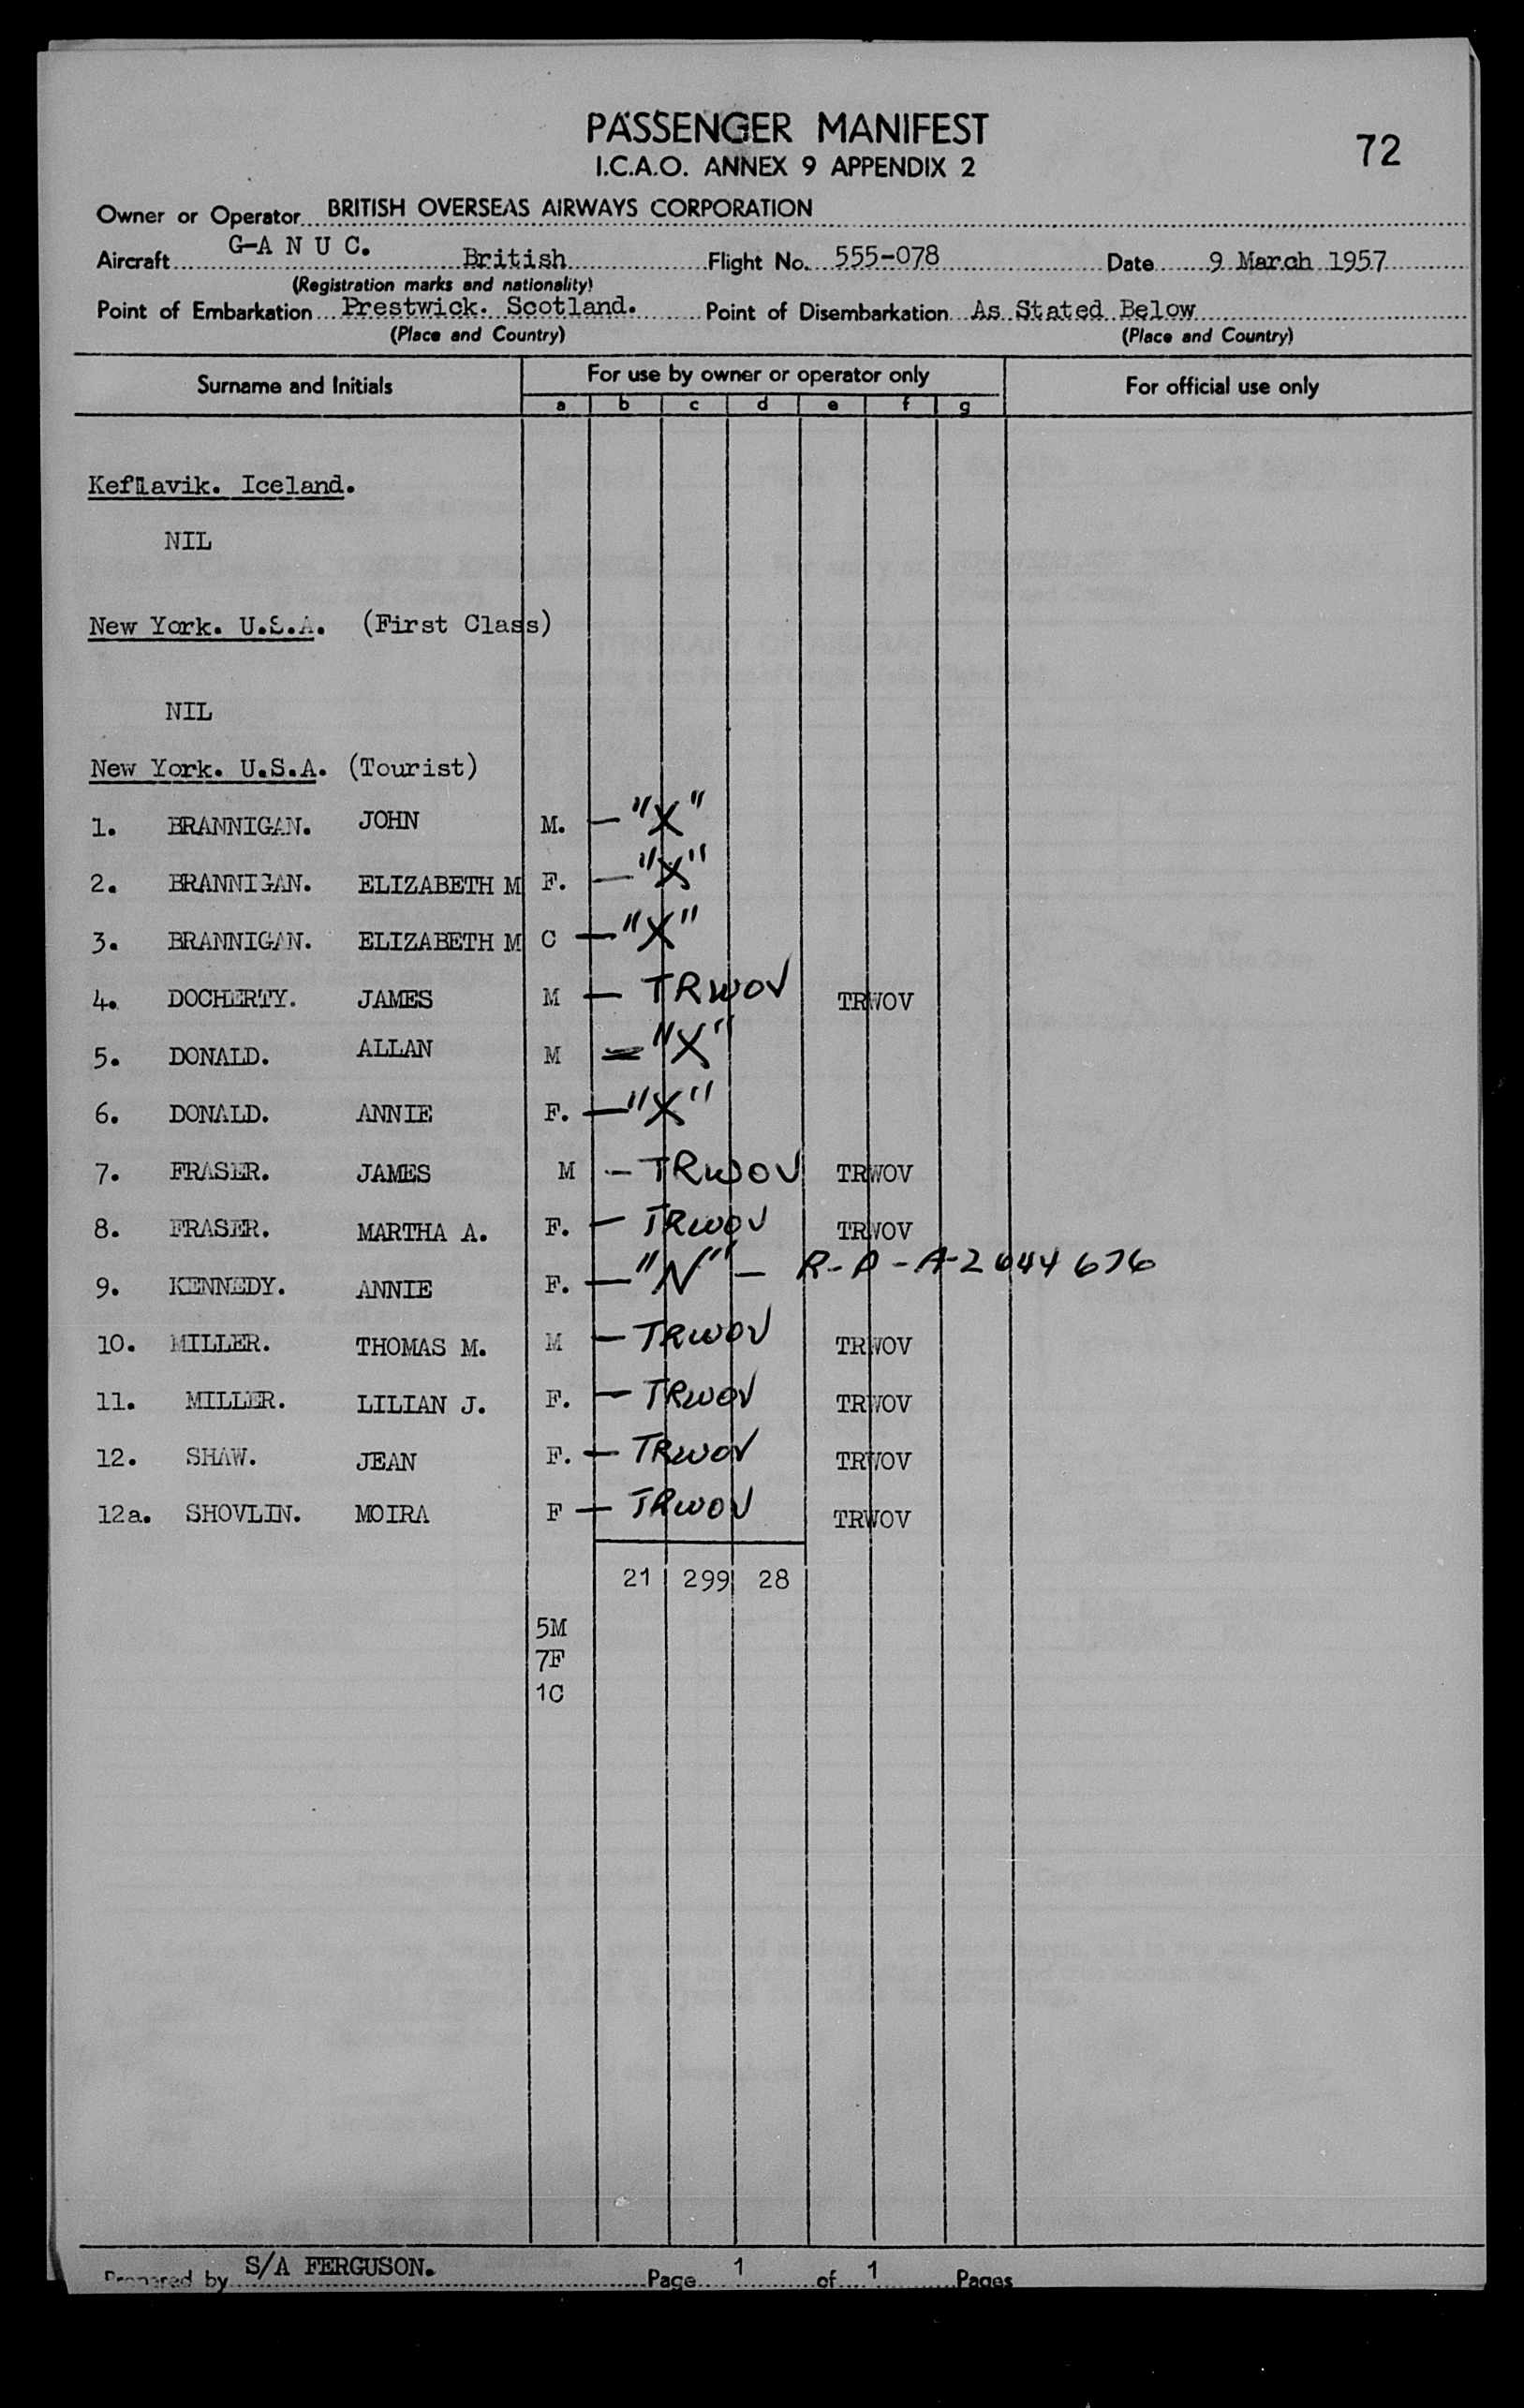 PASSENGER MANIFEST
I.C.A.O. ANNEX 9 APPENDIX 2
72
Owner or Operator BRITISH OVERSEAS AIRWAYS CORPORATION
Aircraft G-A N U C. British Flight No. 555-078 Date 9 March 1957
(Registration marks and nationality)
Point of Embarkation Prestwick. Scotland. Point of Disembarkation As Stated Below
(Place and Country) (Place and Country)
Surname and Initials For use by owner or operator only For official use only
a b c d e f g
Keflavik. Iceland.
NIL
New York. U.S.A. (First Class)
NIL
New York. U.S.A. (Tourist)
1. BRANNIGAN. JOHN M. - "X"
2. BRANNIGAN. ELIZABETH M F. - "X"
3. BRANNIGAN. ELIZABETH M C - "X"
4. DOCHERTY. JAMES M - TRWOV TRWOV
5. DONALD. ALLAN M - "X"
6. DONALD. ANNIE F. - "X"
7. FRASER. JAMES M - TRWOV TRWOV
8. FRASER. MARTHA A. F. - TRWOV TRWOV
9. KENNEDY. ANNIE F. - "N" - R-A-A-2644676
10. MILLER. THOMAS M. M - TRWOV TRWOV
11. MILLER. LILIAN J. F. - TRWOV TRWOV
12. SHAW. JEAN F. - TRWOV TRWOV
12a. SHOVLIN. MOIRA F - TRWOV TRWOV
21 299 28
5M
7F
1C
Prepared by S/A FERGUSON. Page 1 of 1 Pages